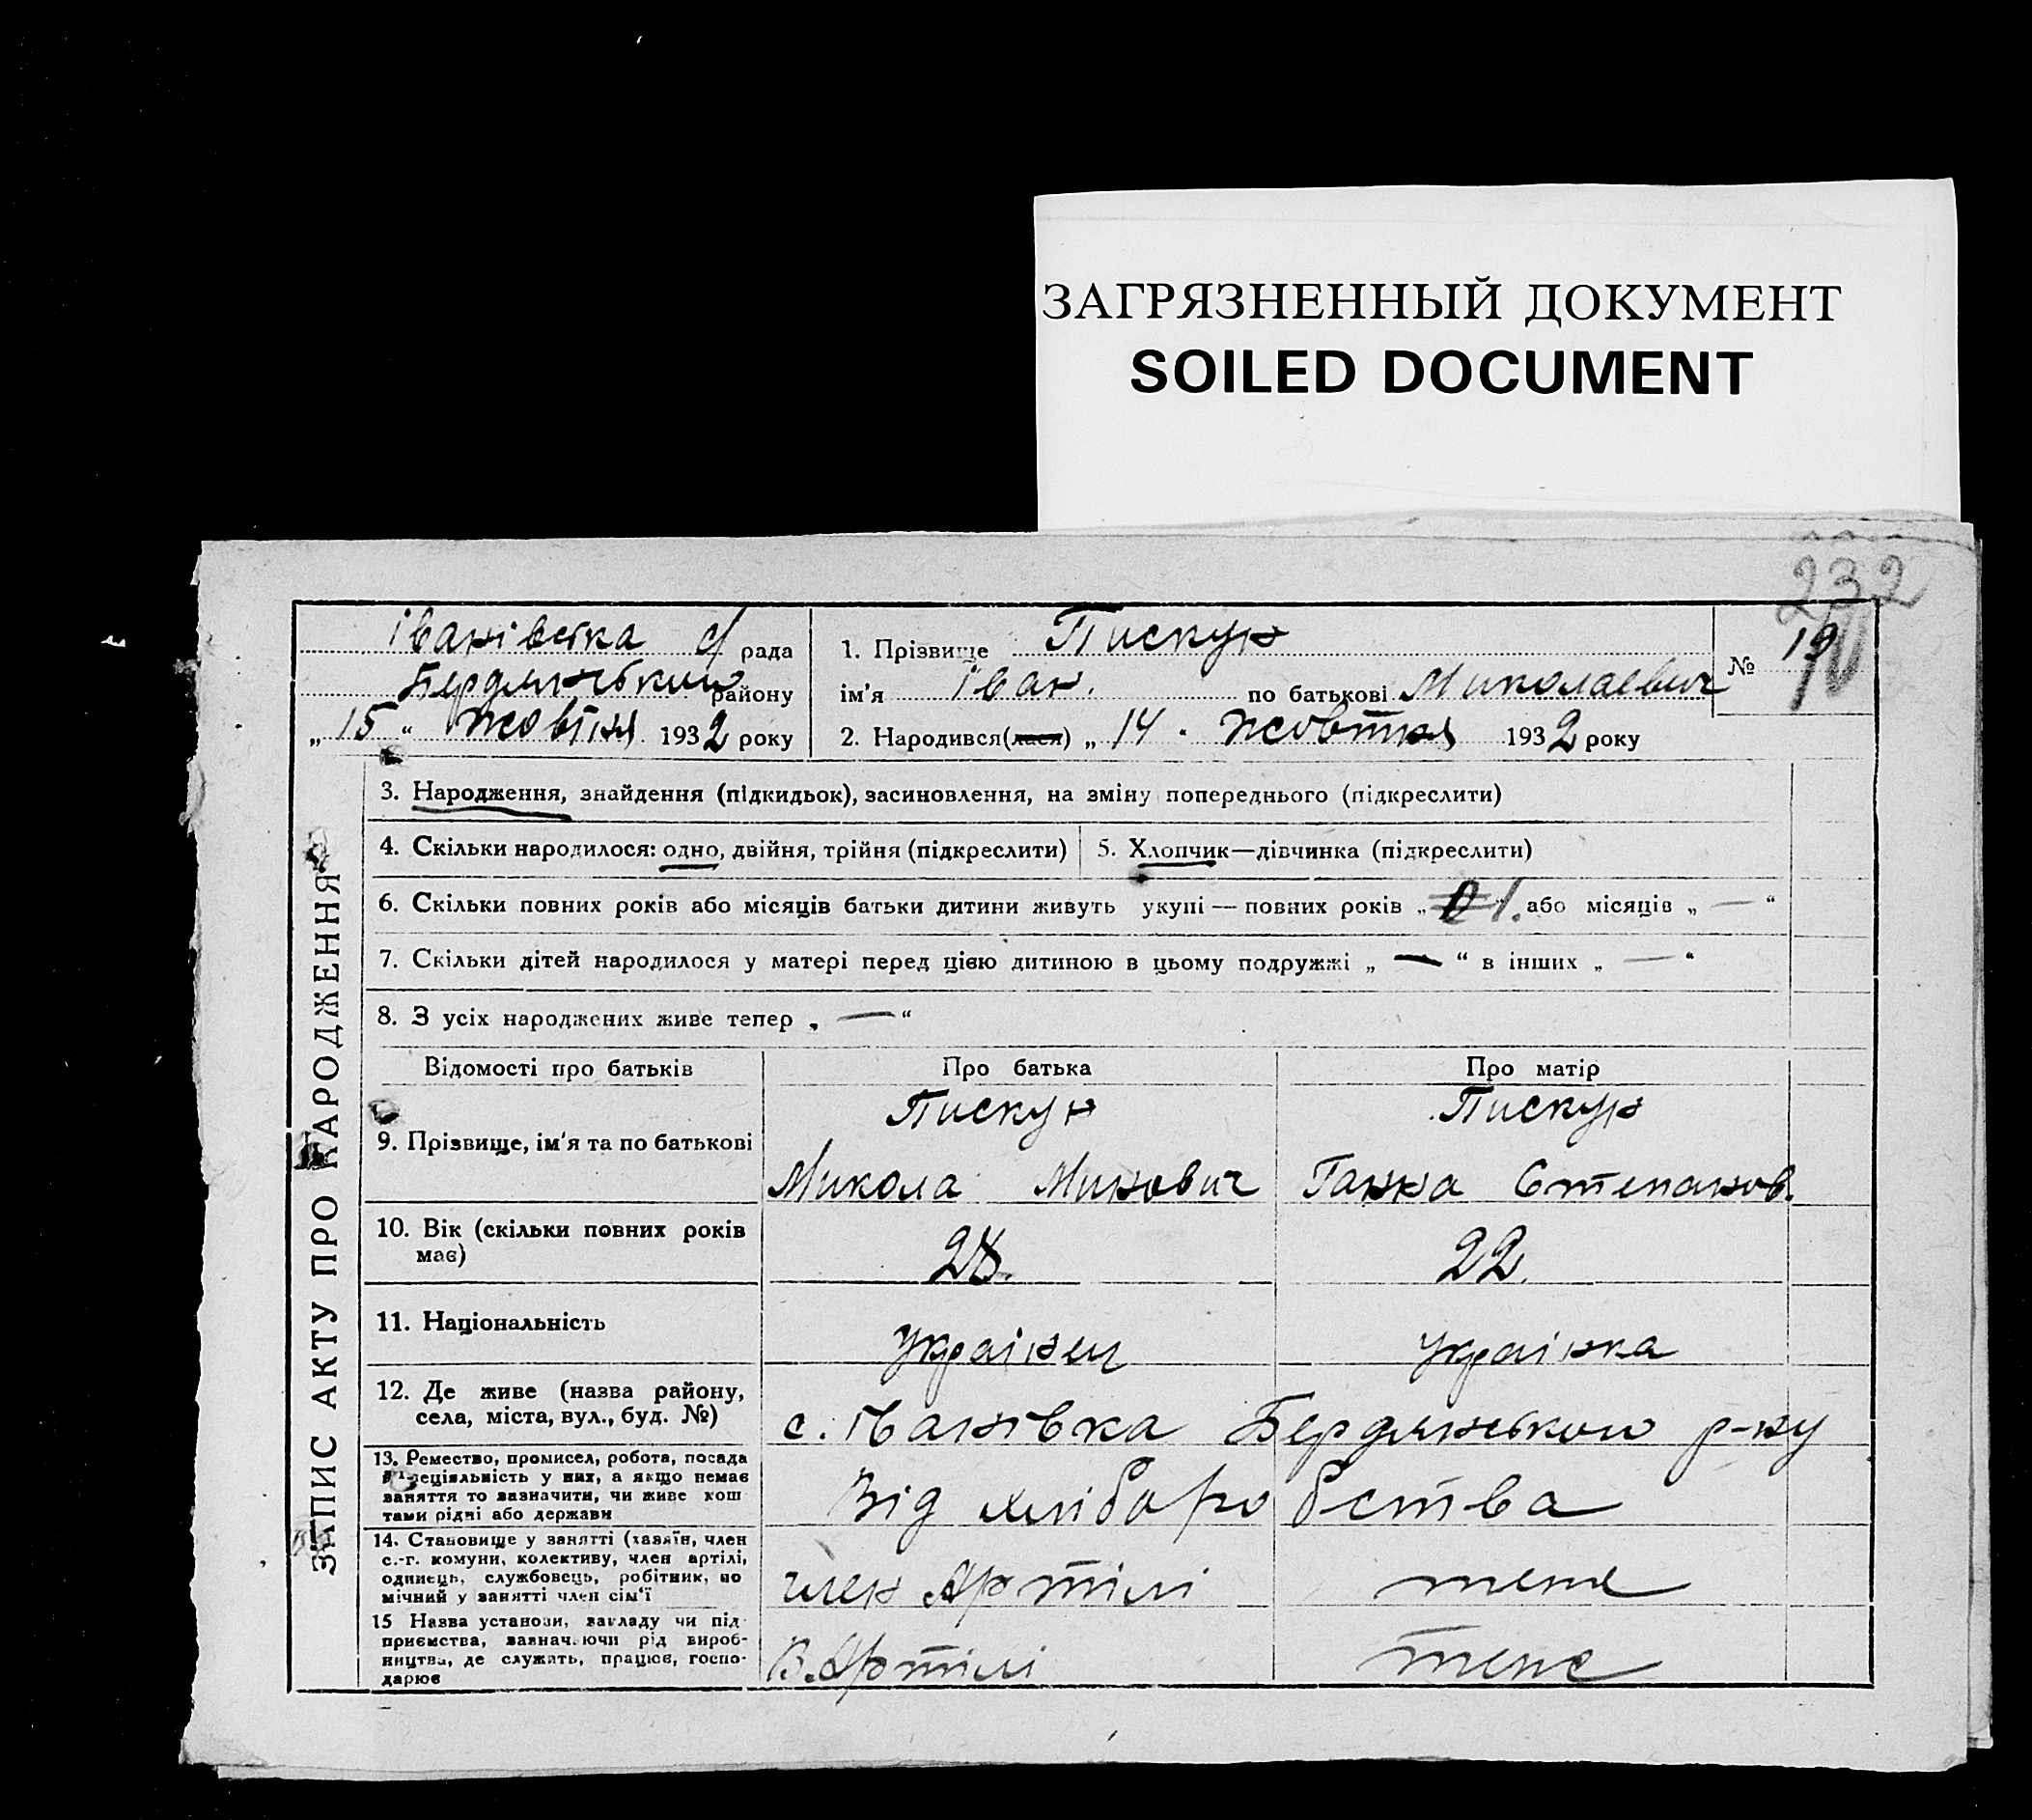 ЗАГРЯЗНЕННЫЙ ДОКУМЕНТ
SOILED DOCUMENT
232
ЗАПИС АКТУ ПРО НАРОДЖЕННЯ
Іванівська с/ рада
Бердянського району
„ 15 “ жовтня 1932 року
1. Прізвище Пискун
ім'я Іван. по батькові Миколаевич
№ 19
2. Народився(лася) „ 14 . жовтня 1932 року
3. Народження, знайдення (підкидьок), засиновлення, на зміну попереднього (підкреслити)
4. Скільки народилося: одно, двійня, трійня (підкреслити)
5. Хлопчик—дівчинка (підкреслити)
6. Скільки повних років або місяців батьки дитини живуть укупі — повних років „ 1. або місяців „ — “
7. Скільки дітей народилося у матері перед цією дитиною в цьому подружжі „ — “ в інших „ — “
8. З усіх народжених живе тепер „ — “
Відомості про батьків Про батька Про матір
9. Прізвище, ім'я та по батькові
Пискун
Микола Минович
Пискун
Ганна Степанов.
10. Вік (скільки повних років має)
28. 22.
11. Національність
українец українка
12. Де живе (назва району,
села, міста, вул., буд. №)
с. Іванівка Бердянського р-ну
13. Ремество, промисел, робота, посада
спеціяльність у них, а якщо немає
заняття то зазначити, чи живе кош
тами рідні або держави
Від хліборобства
14. Становище у занятті (хазяїн, член
с.-г. комуни, колективу, член артілі,
одинець, службовець, робітник, по
мічний у занятті член сім'ї
член Артілі теже
15 Назва установи, закладу чи під
приємства, зазначаючи рід вироб-
ництва, де служить, працює, госпо-
дарює
В. Артілі теже